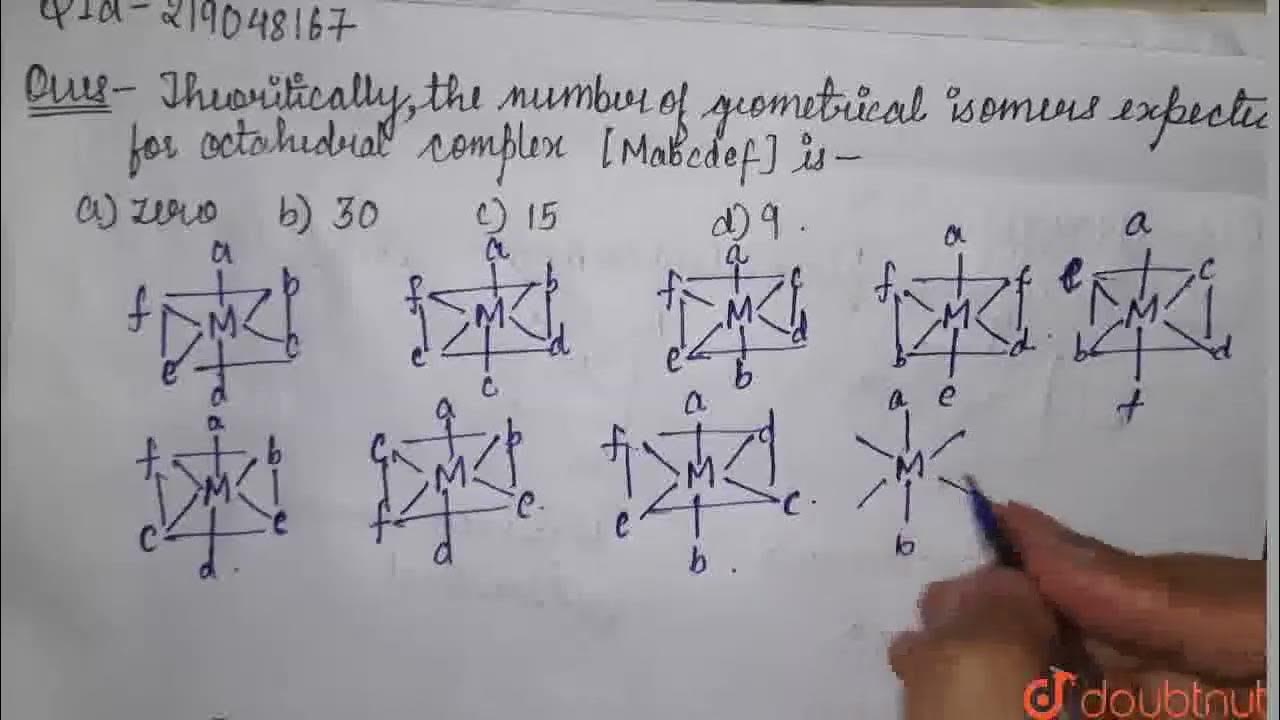 QId-219048167
Ques- Theoritically, the number of geometrical isomers expecte
for octahedral complex [Mabcdef] is -
a) zero b) 30 c) 15 d) 9.
a a a a a
f b f b f c f f e c
M M M M M
e c e d e d b d b d
d c b e f
a a a a
f b c b f d
M M M M
c e f e e c
d d b b
doubtnut